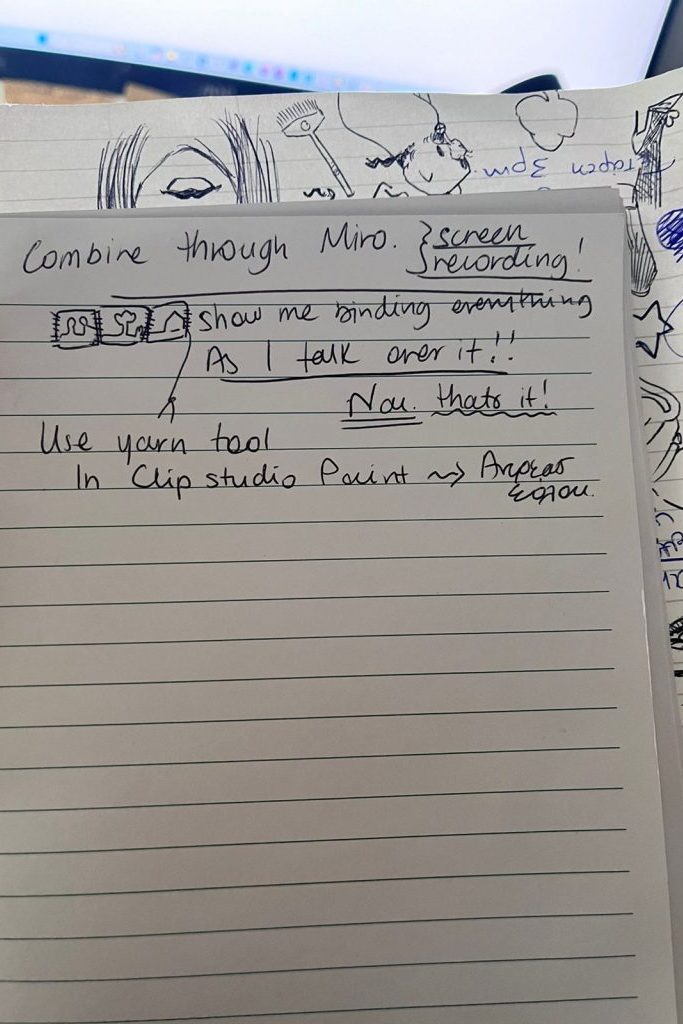 3pm
Combine through Miro. } screen
recording!
show me binding everything
As I talk over it!!
Nai. thats it!
Use yarn tool
In Clip studio Paint ~>